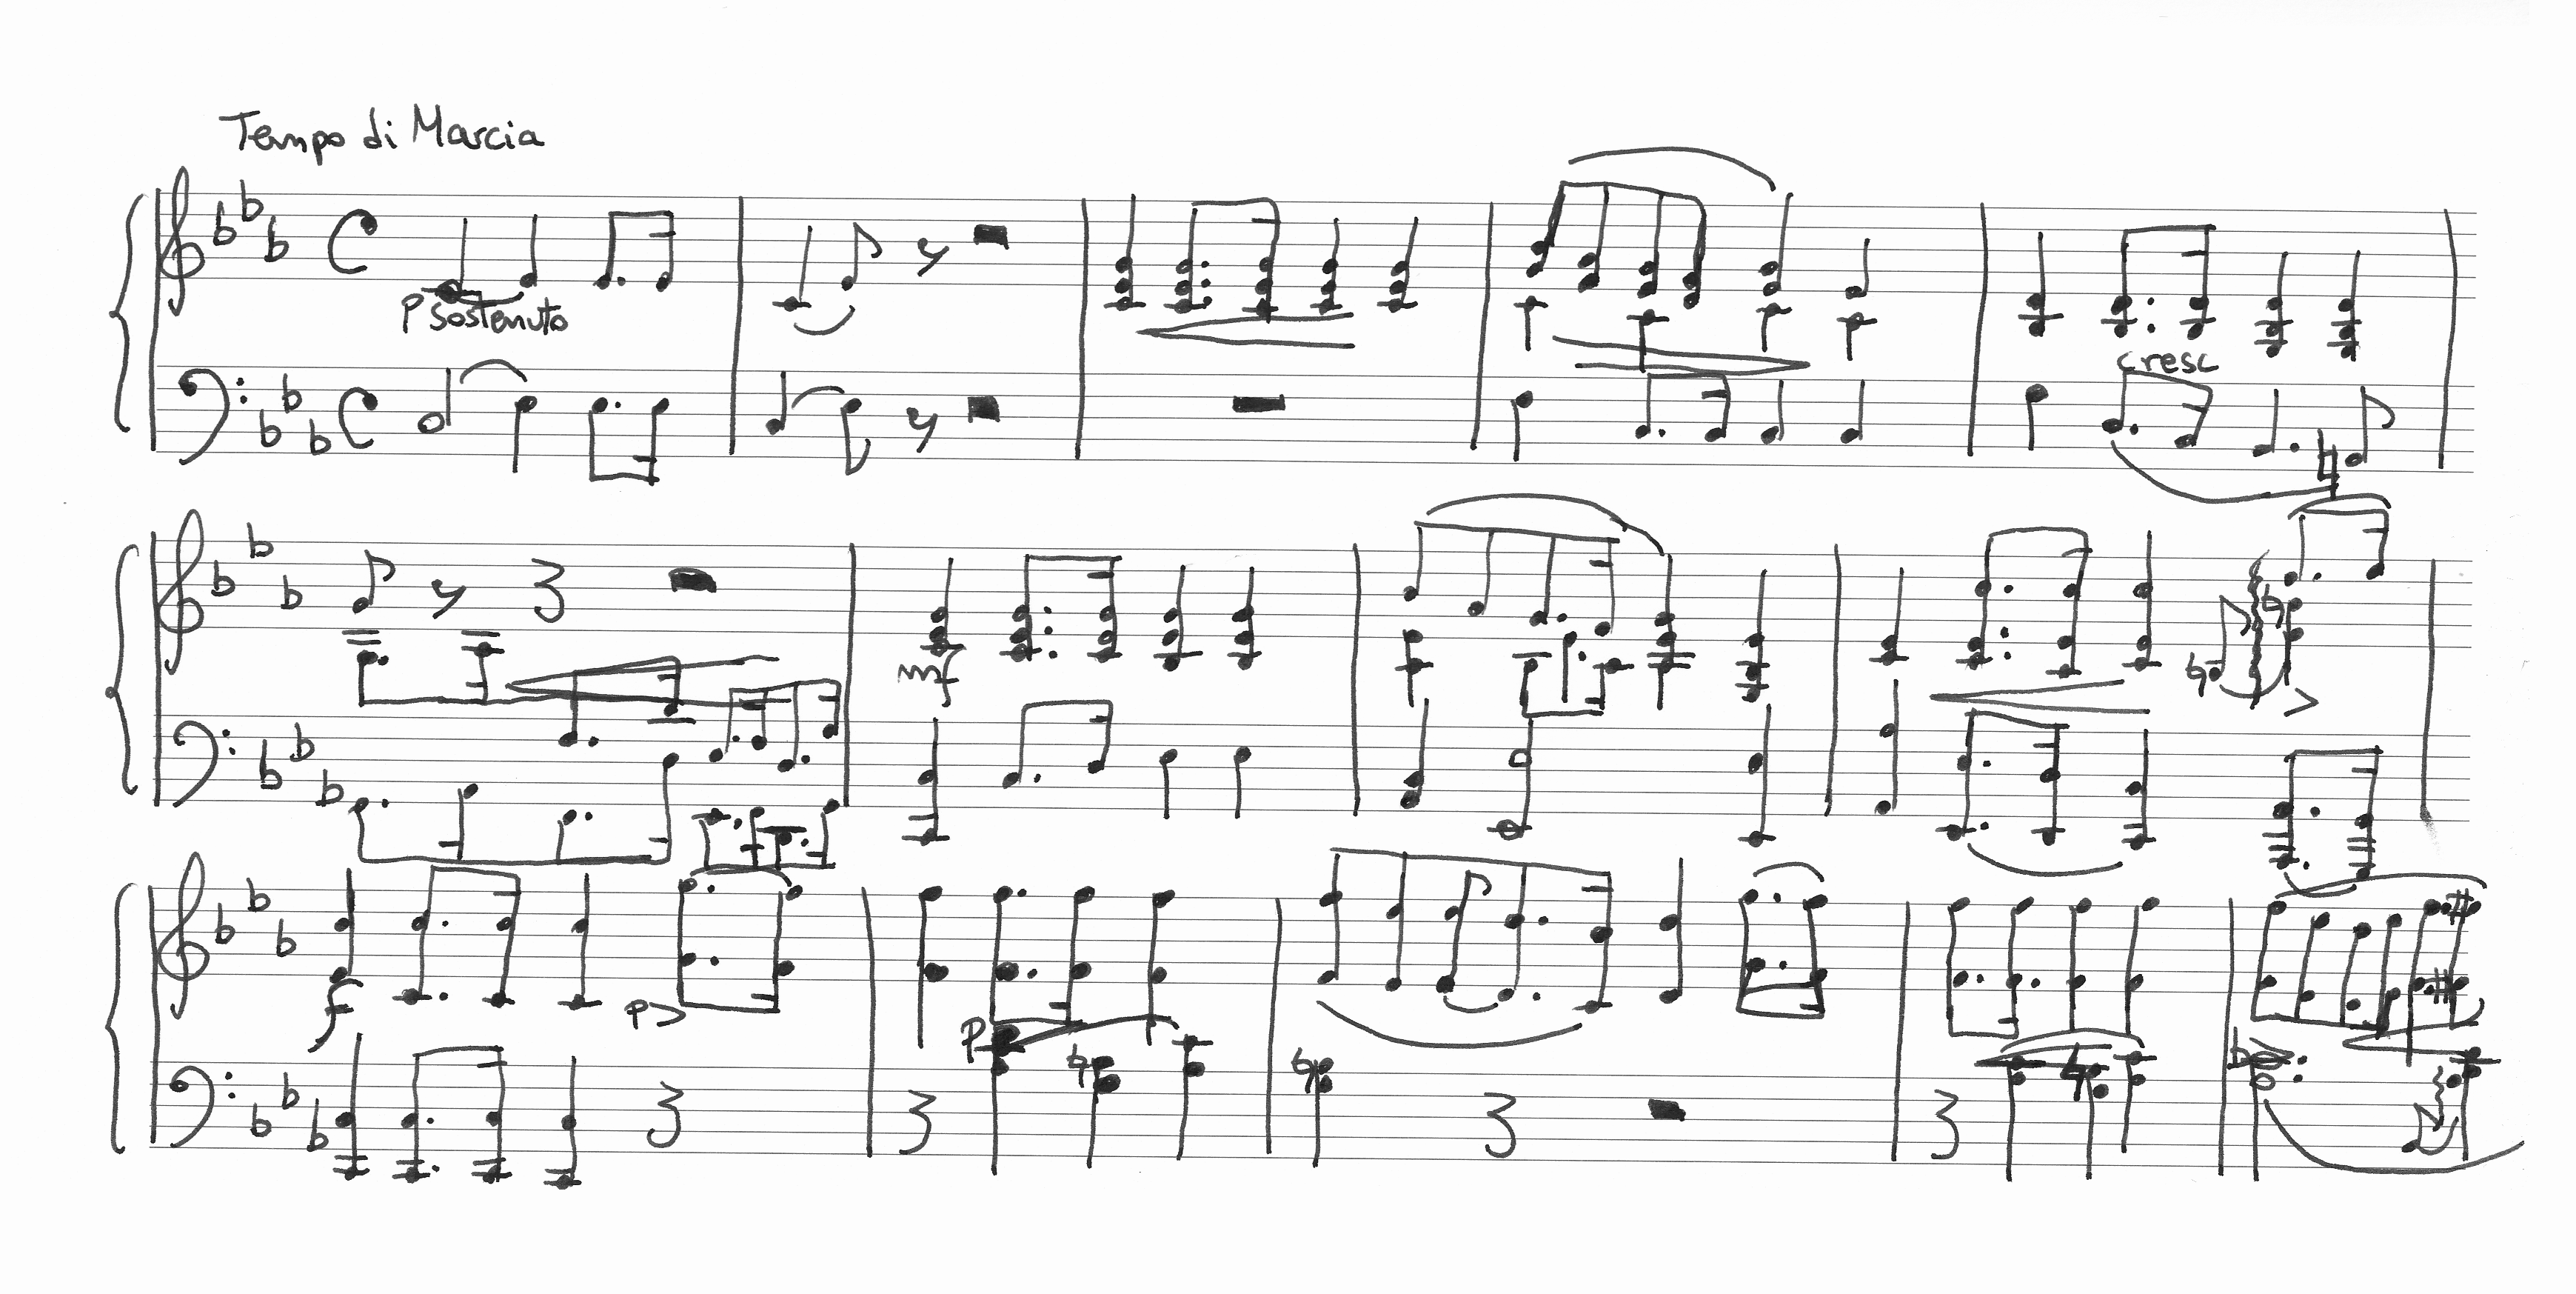 Tempo di Marcia
p sostenuto
cresc
mf
f
p
p